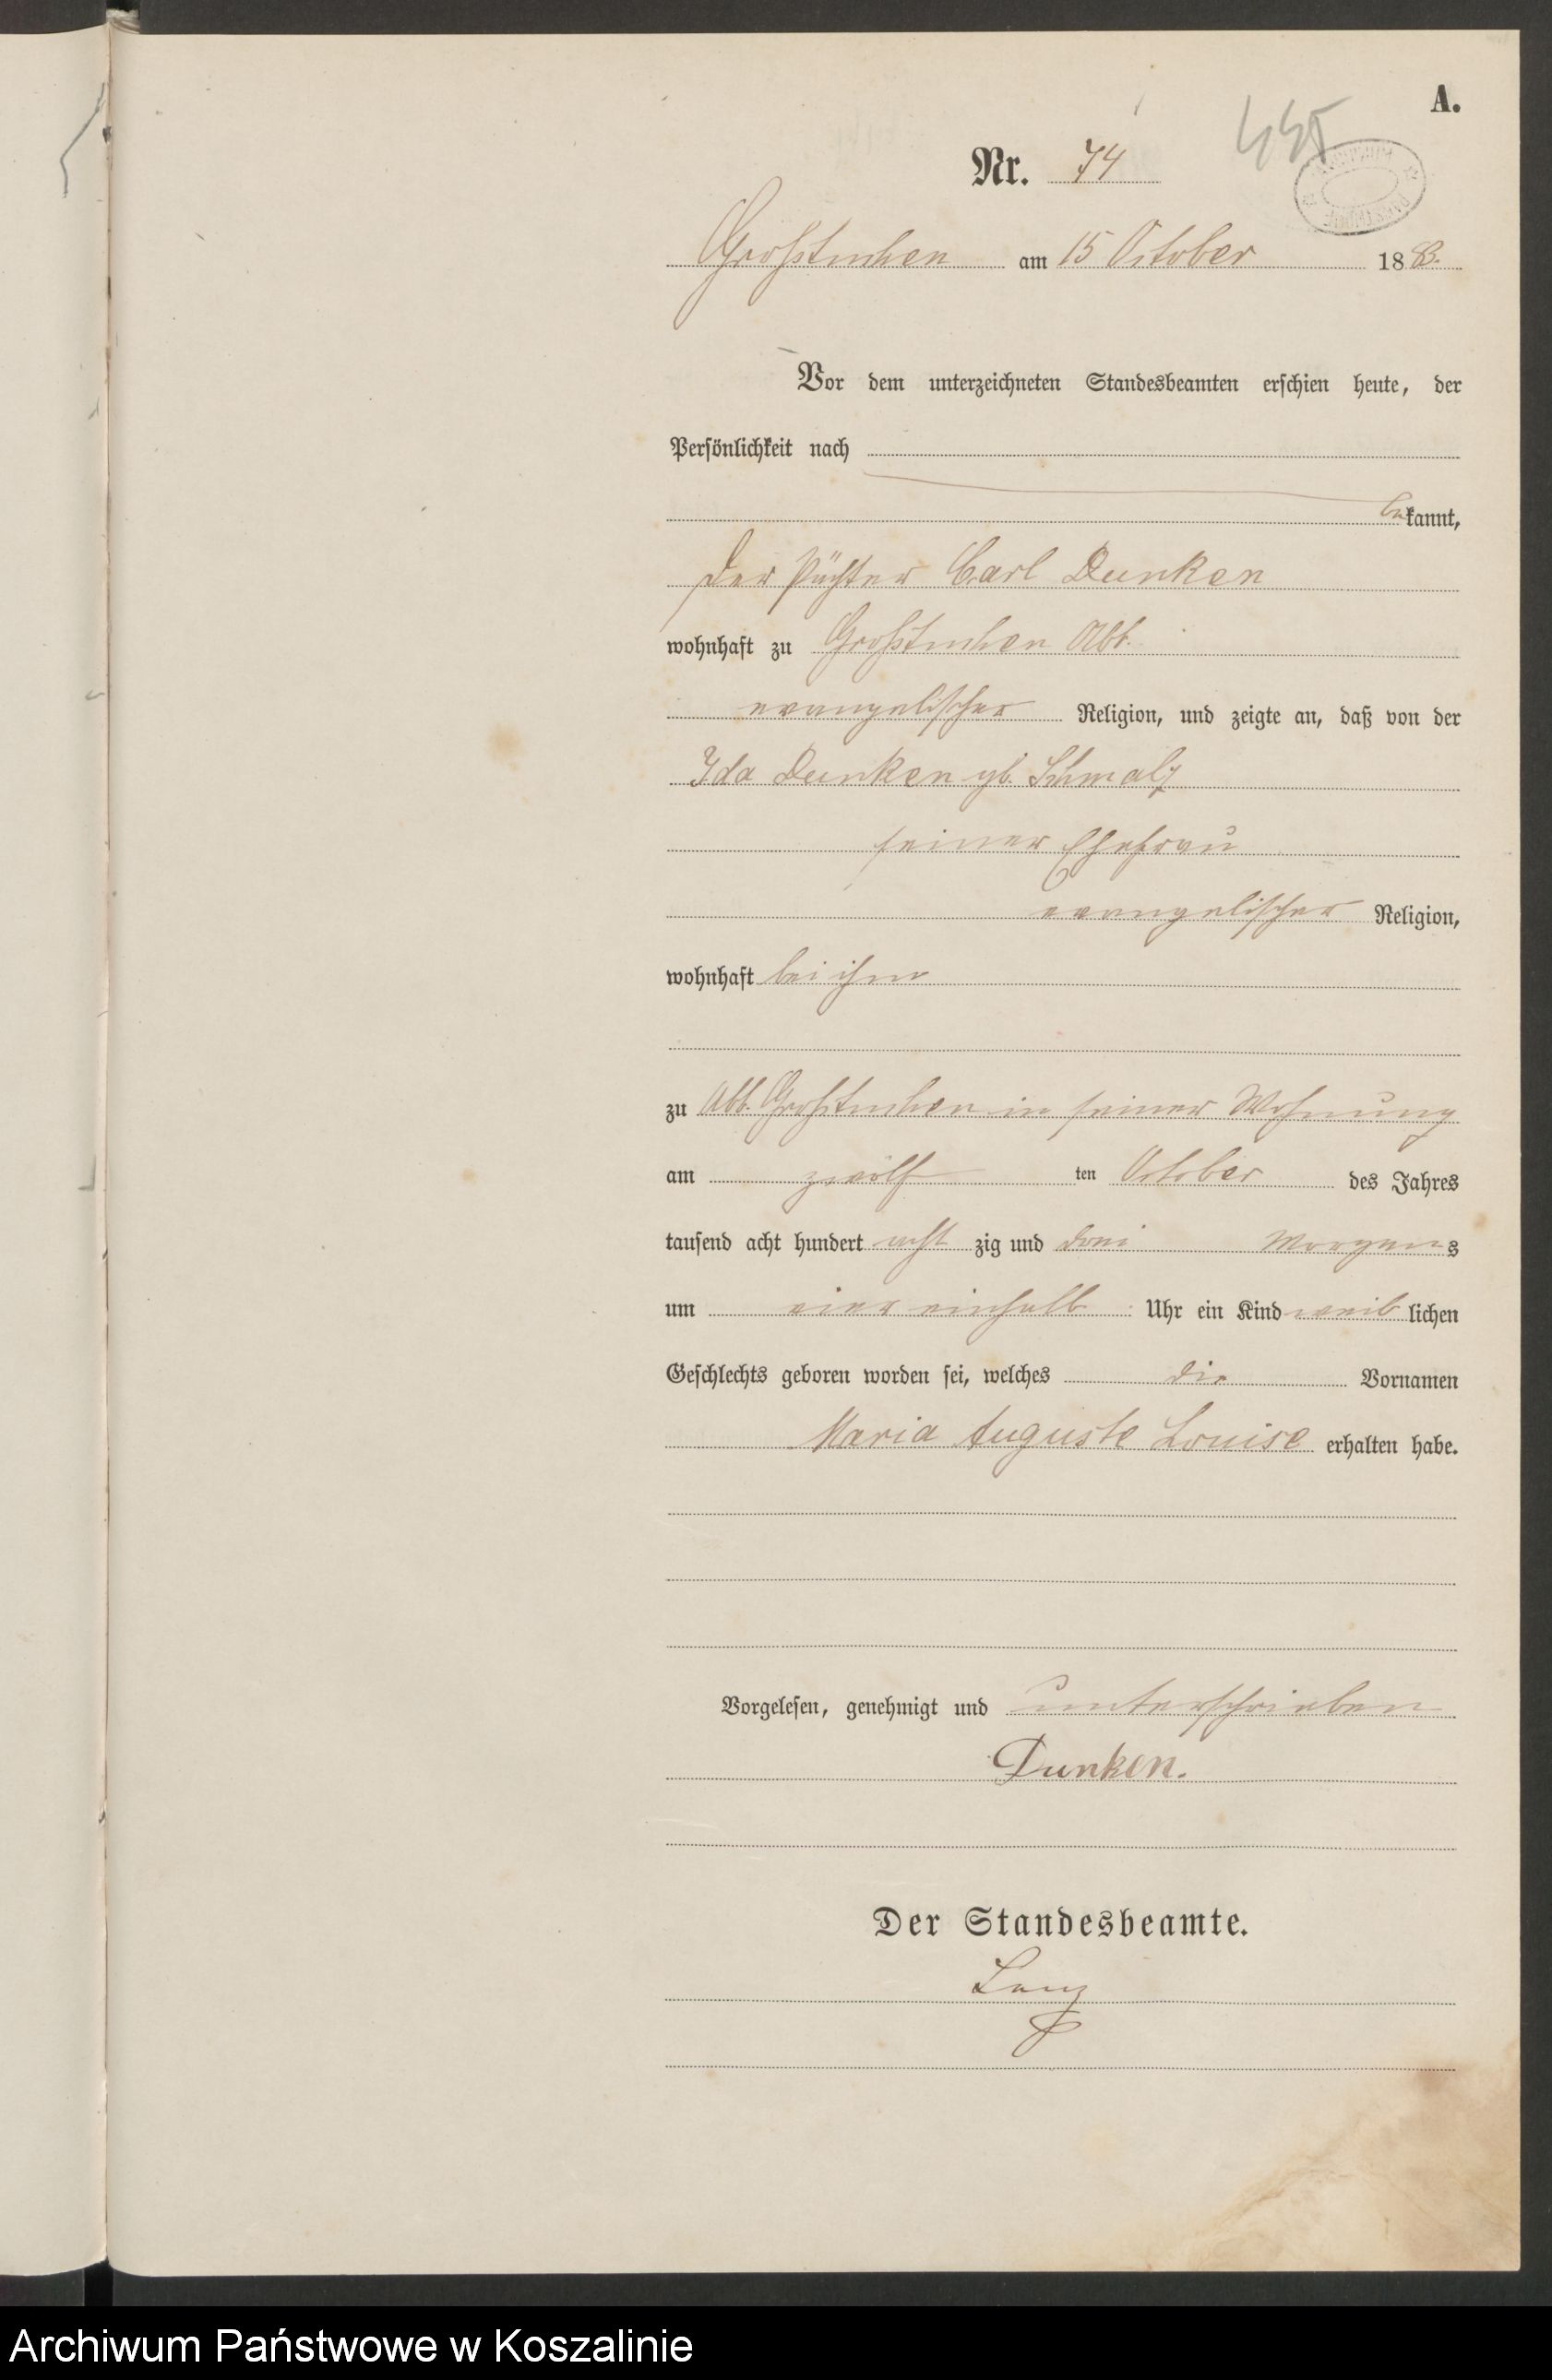 A.
445
Nr. 74
Großtuchen am 15 October 1883.
Vor dem unterzeichneten Standesbeamten erschien heute, der
Persönlichkeit nach
bekannt,
der Pächter Carl Dunken
wohnhaft zu Großtuchen Abb.
evangelischer Religion, und zeigte an, daß von der
Ida Dunken gb. Schmalz
seiner Ehefrau
evangelischer Religion,
wohnhaft bei ihm
zu Abb. Großtuchen in seiner Wohnung
am zwölf ten October des Jahres
tausend acht hundert acht zig und drei Morgens
um vier einhalb Uhr ein Kind weib lichen
Geschlechts geboren worden sei, welches die Vornamen
Maria Auguste Louise erhalten habe.
Vorgelesen, genehmigt und unterschrieben
Dunken.
Der Standesbeamte.
Archiwum Państwowe w Koszalinie